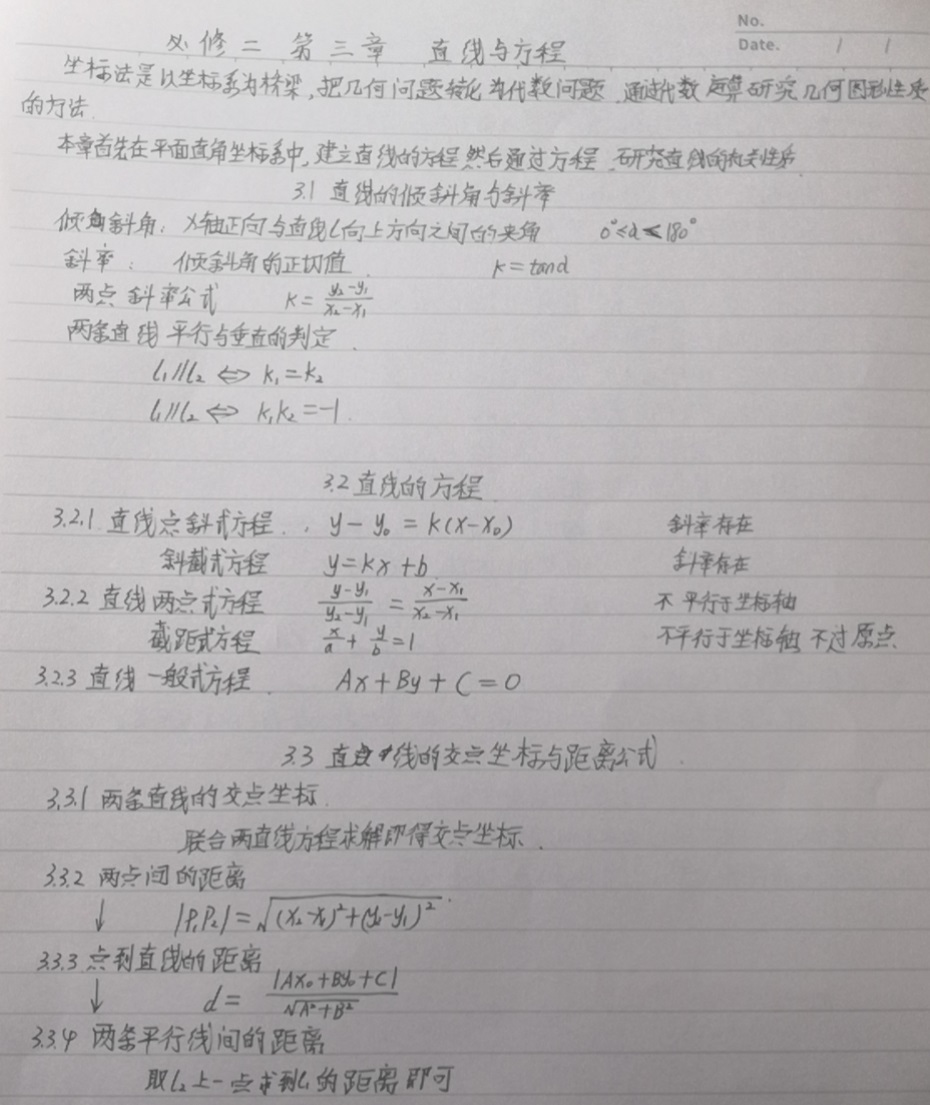 No.
Date. / /
必修二 第三章 直线与方程
坐标法是以坐标系为桥梁,把几何问题转化为代数问题,通过代数运算研究几何图形性质
的方法.
本章首先在平面直角坐标系中,建立直线的方程然后通过方程,研究直线的有关性质.
3.1 直线的倾斜角与斜率
倾斜角: x轴正向与直线l向上方向之间的夹角 0°≤α≤180°
斜率: 倾斜角的正切值. k=tanα
两点斜率公式 k=(y₂-y₁)/(x₂-x₁)
两条直线平行与垂直的判定.
l₁//l₂ ⇔ k₁=k₂
l₁//l₂ ⇔ k₁k₂=-1.
3.2 直线的方程
3.2.1 直线点斜式方程. y-y₀=k(x-x₀) 斜率存在
斜截式方程 y=kx+b 斜率存在
3.2.2 直线两点式方程 (y-y₁)/(y₂-y₁)=(x-x₁)/(x₂-x₁) 不平行于坐标轴
截距式方程 x/a+y/b=1 不平行于坐标轴 不过原点
3.2.3 直线一般式方程. Ax+By+C=0
3.3 直线的交点坐标与距离公式.
3.3.1 两条直线的交点坐标.
联合两直线方程求解即得交点坐标.
3.3.2 两点间的距离
↓ |P₁P₂|=√((x₂-x₁)²+(y₂-y₁)²)
3.3.3 点到直线的距离
↓ d=|Ax₀+By₀+C|/√(A²+B²)
3.3.4 两条平行线间的距离
取l₂上一点求到l₁的距离即可